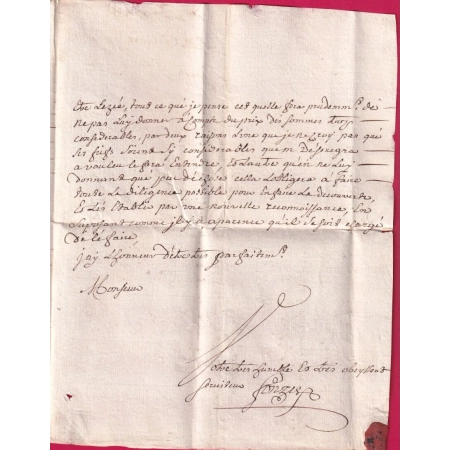 Etre Lezée, tout ce que je pense est quelle fera prudemm.t de
ne pas Luy donner a Compte du prix des sommes
considerables, par deux raisons Lune que je ne croy pas que
ses fuss Soient Sy considerables que m.
a vouleu le fere Entendre, Et Lautre qu'en ne Luy
donnant que peu de Cella L'obligera a Faire
toute La diligence possible pour En faire La decouverte,
Et Les Etablir par une nouvelle reconnoissance, En
Suposant comme jl y a aparence qu'il soit chargé
de le faire,
J'ay L'honneur d'être tres parfaitem.t
Monsieur
Votre tres humble Et tres obeyssant
serviteur